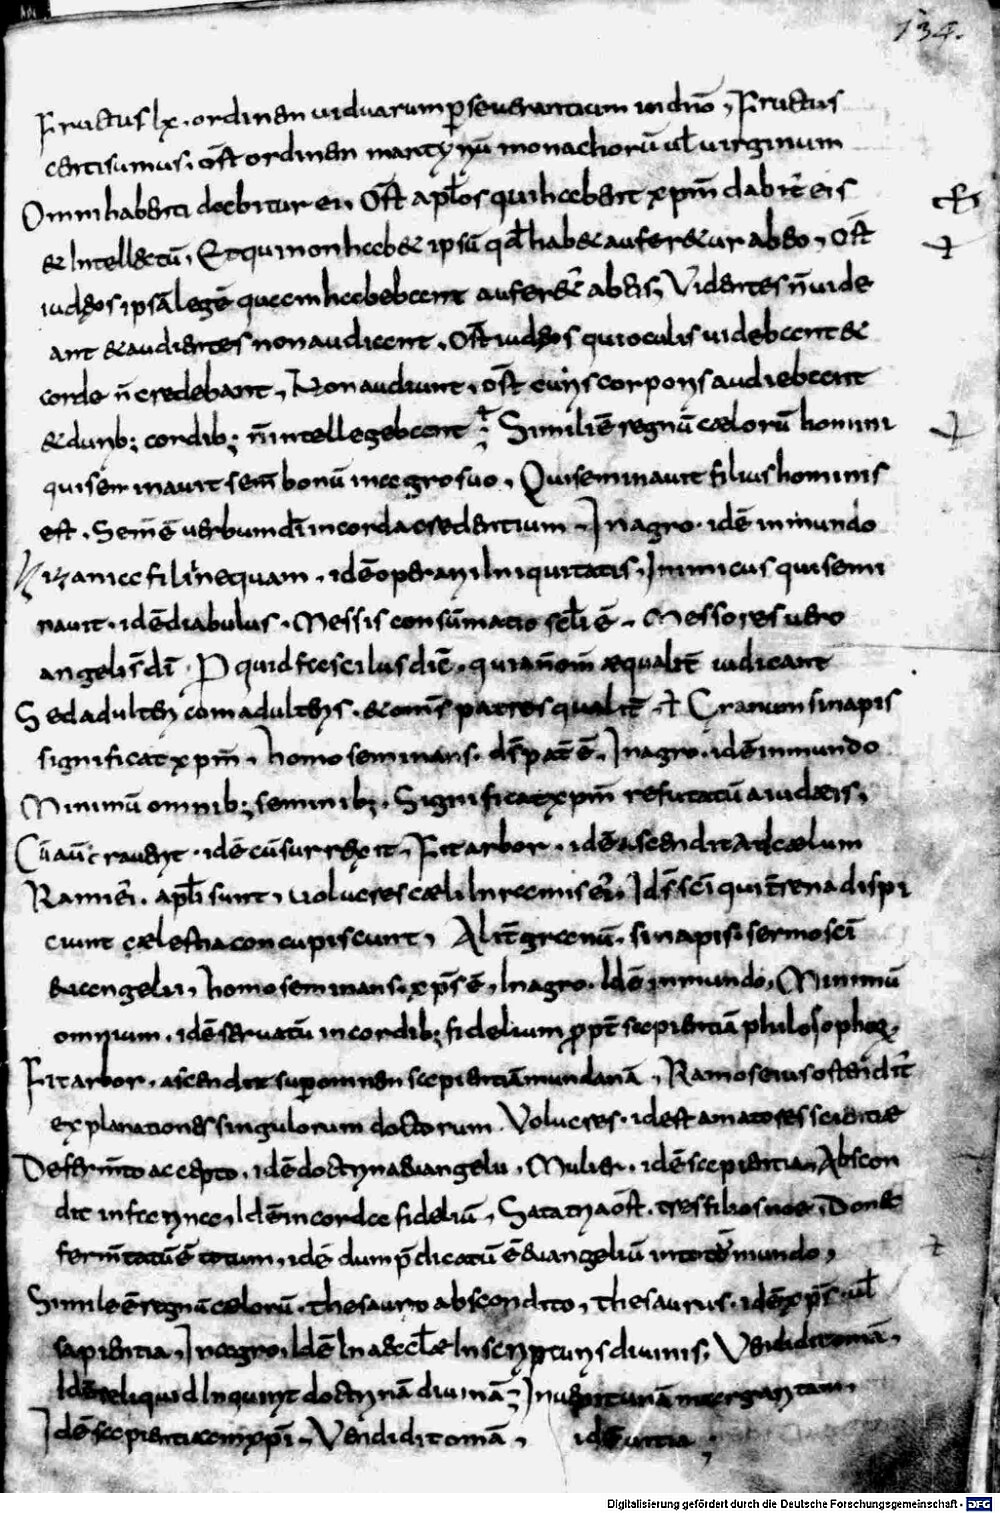 134.
Fructus lx · ordinem uiduarum p̱seuerantium in dn̄o , Fructus
centisumus · ost̄ ordinem martyrū monachorū ul̄ uirginum
Omni habenti dabitur ei ost̄ apl̄os qui habent xp̄m dabit̄ eis
& Intellectū , Et qui non hab& ipsū qd̄ hab& aufer&ur ab eo , ost̄
iudeos ipsā legē quam habebant aufer&̄ ab eis , Videntes n̄ uide
ant & audientes non audient , ost̄ iudeos qui oculis uidebant &
corde n̄ credebant , Non audiunt , ost̄ auris corporis audiebant
& durib; cordib; n̄ intellegebant Simil̄ ē regnū cælorū homini
qui seminauit sem̄ bonū in agro suo , Qui seminauit filius hominis
est . Sem̄ ē uerbum dī in corda credentium , In agro · idē in mundo
Zizania filī nequam , idē operarii Iniquitatis , Inimicus qui semi
nauit · idē diabulus · Messis consūmatio scl̄i ē , Messores uero
angeli s̄ dī
Sed adulteri com adulteris · & om̄s patres qualit̄ , Cranum sinapis
significat xp̄m , homo seminans · ds̄ pat̄ ē , In agro · idē in mundo
Minimū omnib; seminib; · Significat xp̄m refutatū a iudæis ,
Cū aū crauerit · idē cū surrexit , Fit arbor · idē ascendit ad cælum
Rami ei · apl̄i sunt , uolucres cæli In ramis ei · Id s̄ scī qui terrena dispi
ciunt cælestia concupiscunt , Alit̄ granū · sinapis · sermo scī
euangelii , homo seminans · xp̄s ē , In agro · Idē in mundo , Minimū
omnium · idē seruatū in cordib; fidelium ꝓpt̄ sapientiā philosophoꝝ ·
Fit arbor · ascendit sup̱ omnem sapientiā mundanā , Ramos eius ostendit̄
explanationes singulorum doctorum Volucres · id est amatores scientiæ
De ferm̄to accepto · idē doctrina euangelii , Mulier · idē sapientia , Abscon
dit in farina , Idē in corda fideliū , Sata tria ost̄ · tres filios noe , Donec
ferm̄tatū ē totum , idē dum p̄dicatū ē euangeliū in toto mundo ,
Simile ē regnū cælorū · thesauro abscondito , thesaurus · idē xp̄s · ul̄
sapientia , In agro , Idē In aeccl̄a In scripturis diuinis , Vendidit omā ,
Idē reliquid Inquirit doctrinā diuinā , Inuentunā margaritam ,
Idē sapientia com xp̄i , Vendidit omā , idē
Digitalisierung gefördert durch die Deutsche Forschungsgemeinschaft - DFG